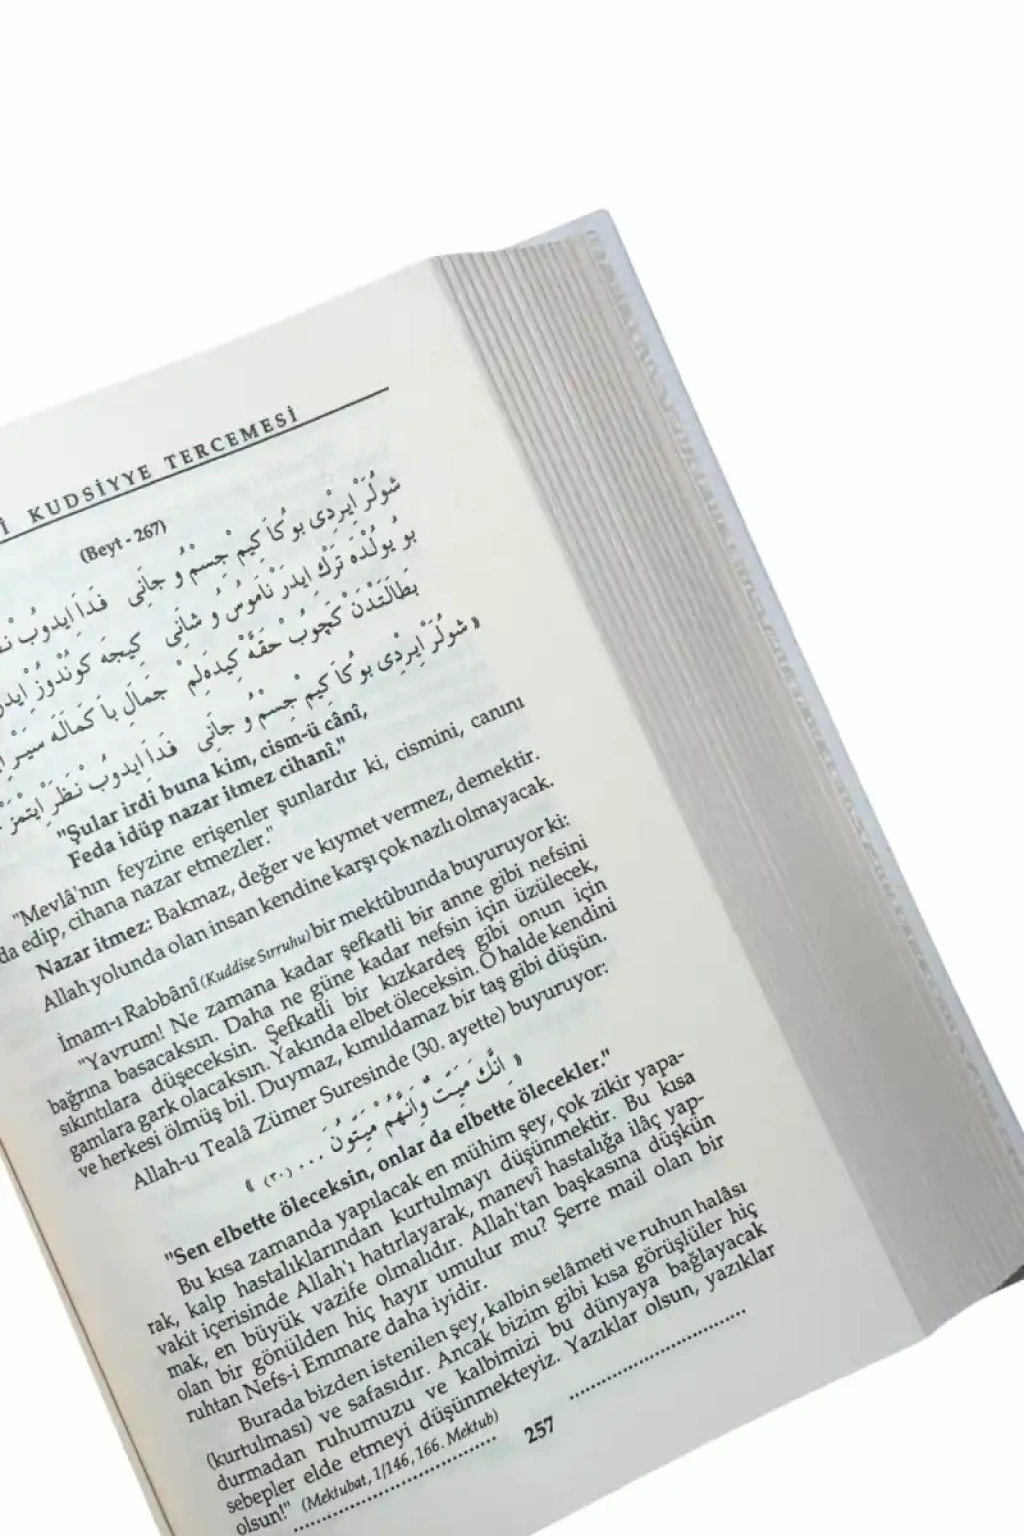 İ KUDSİYYE TERCEMESİ
(Beyt - 267)
شولَر ایردی بو کا کیم جسم و جانی فدا ایدوب
بو یولده ترك ایدر ناموس و شانی کیجه کوندوز
بطالتدن کچوب حقه کیدهلم جمال با کماله سیر
«شولر ایردی بو کا کیم جسم و جانی فدا ایدوب نظر ایتمز
"Şular irdi buna kim, cism-ü cânî,
Feda idüp nazar itmez cihanî."
"Mevlâ'nın feyzine erişenler şunlardır ki, cismini, canını
da edip, cihana nazar etmezler."
Nazar itmez: Bakmaz, değer ve kıymet vermez, demektir.
Allah yolunda olan insan kendine karşı çok nazlı olmayacak.
İmam-ı Rabbânî (Kuddise Sırruhu) bir mektûbunda buyuruyor ki:
"Yavrum! Ne zamana kadar şefkatli bir anne gibi nefsini
bağrına basacaksın. Daha ne güne kadar nefsin için üzülecek,
sıkıntılara düşeceksin. Şefkatli bir kızkardeş gibi onun için
gamlara gark olacaksın. Yakında elbet öleceksin. O halde kendini
ve herkesi ölmüş bil. Duymaz, kımıldamaz bir taş gibi düşün.
Allah-u Tealâ Zümer Suresinde (30. ayette) buyuruyor:
« اِنَّكَ مَيِّتٌ وَاِنَّهُمْ مَيِّتُونَ ... (٣٠) »
"Sen elbette öleceksin, onlar da elbette ölecekler."
Bu kısa zamanda yapılacak en mühim şey, çok zikir yapa-
rak, kalp hastalıklarından kurtulmayı düşünmektir. Bu kısa
vakit içerisinde Allah'ı hatırlayarak, manevî hastalığa ilâç yap-
mak, en büyük vazife olmalıdır. Allah'tan başkasına düşkün
olan bir gönülden hiç hayır umulur mu? Şerre mail olan bir
ruhtan Nefs-i Emmare daha iyidir.
Burada bizden istenilen şey, kalbin selâmeti ve ruhun halâsı
(kurtulması) ve safasıdır. Ancak bizim gibi kısa görüşlüler hiç
durmadan ruhumuzu ve kalbimizi bu dünyaya bağlayacak
sebepler elde etmeyi düşünmekteyiz. Yazıklar olsun, yazıklar
olsun!" (Mektubat, 1/146, 166. Mektub)
257